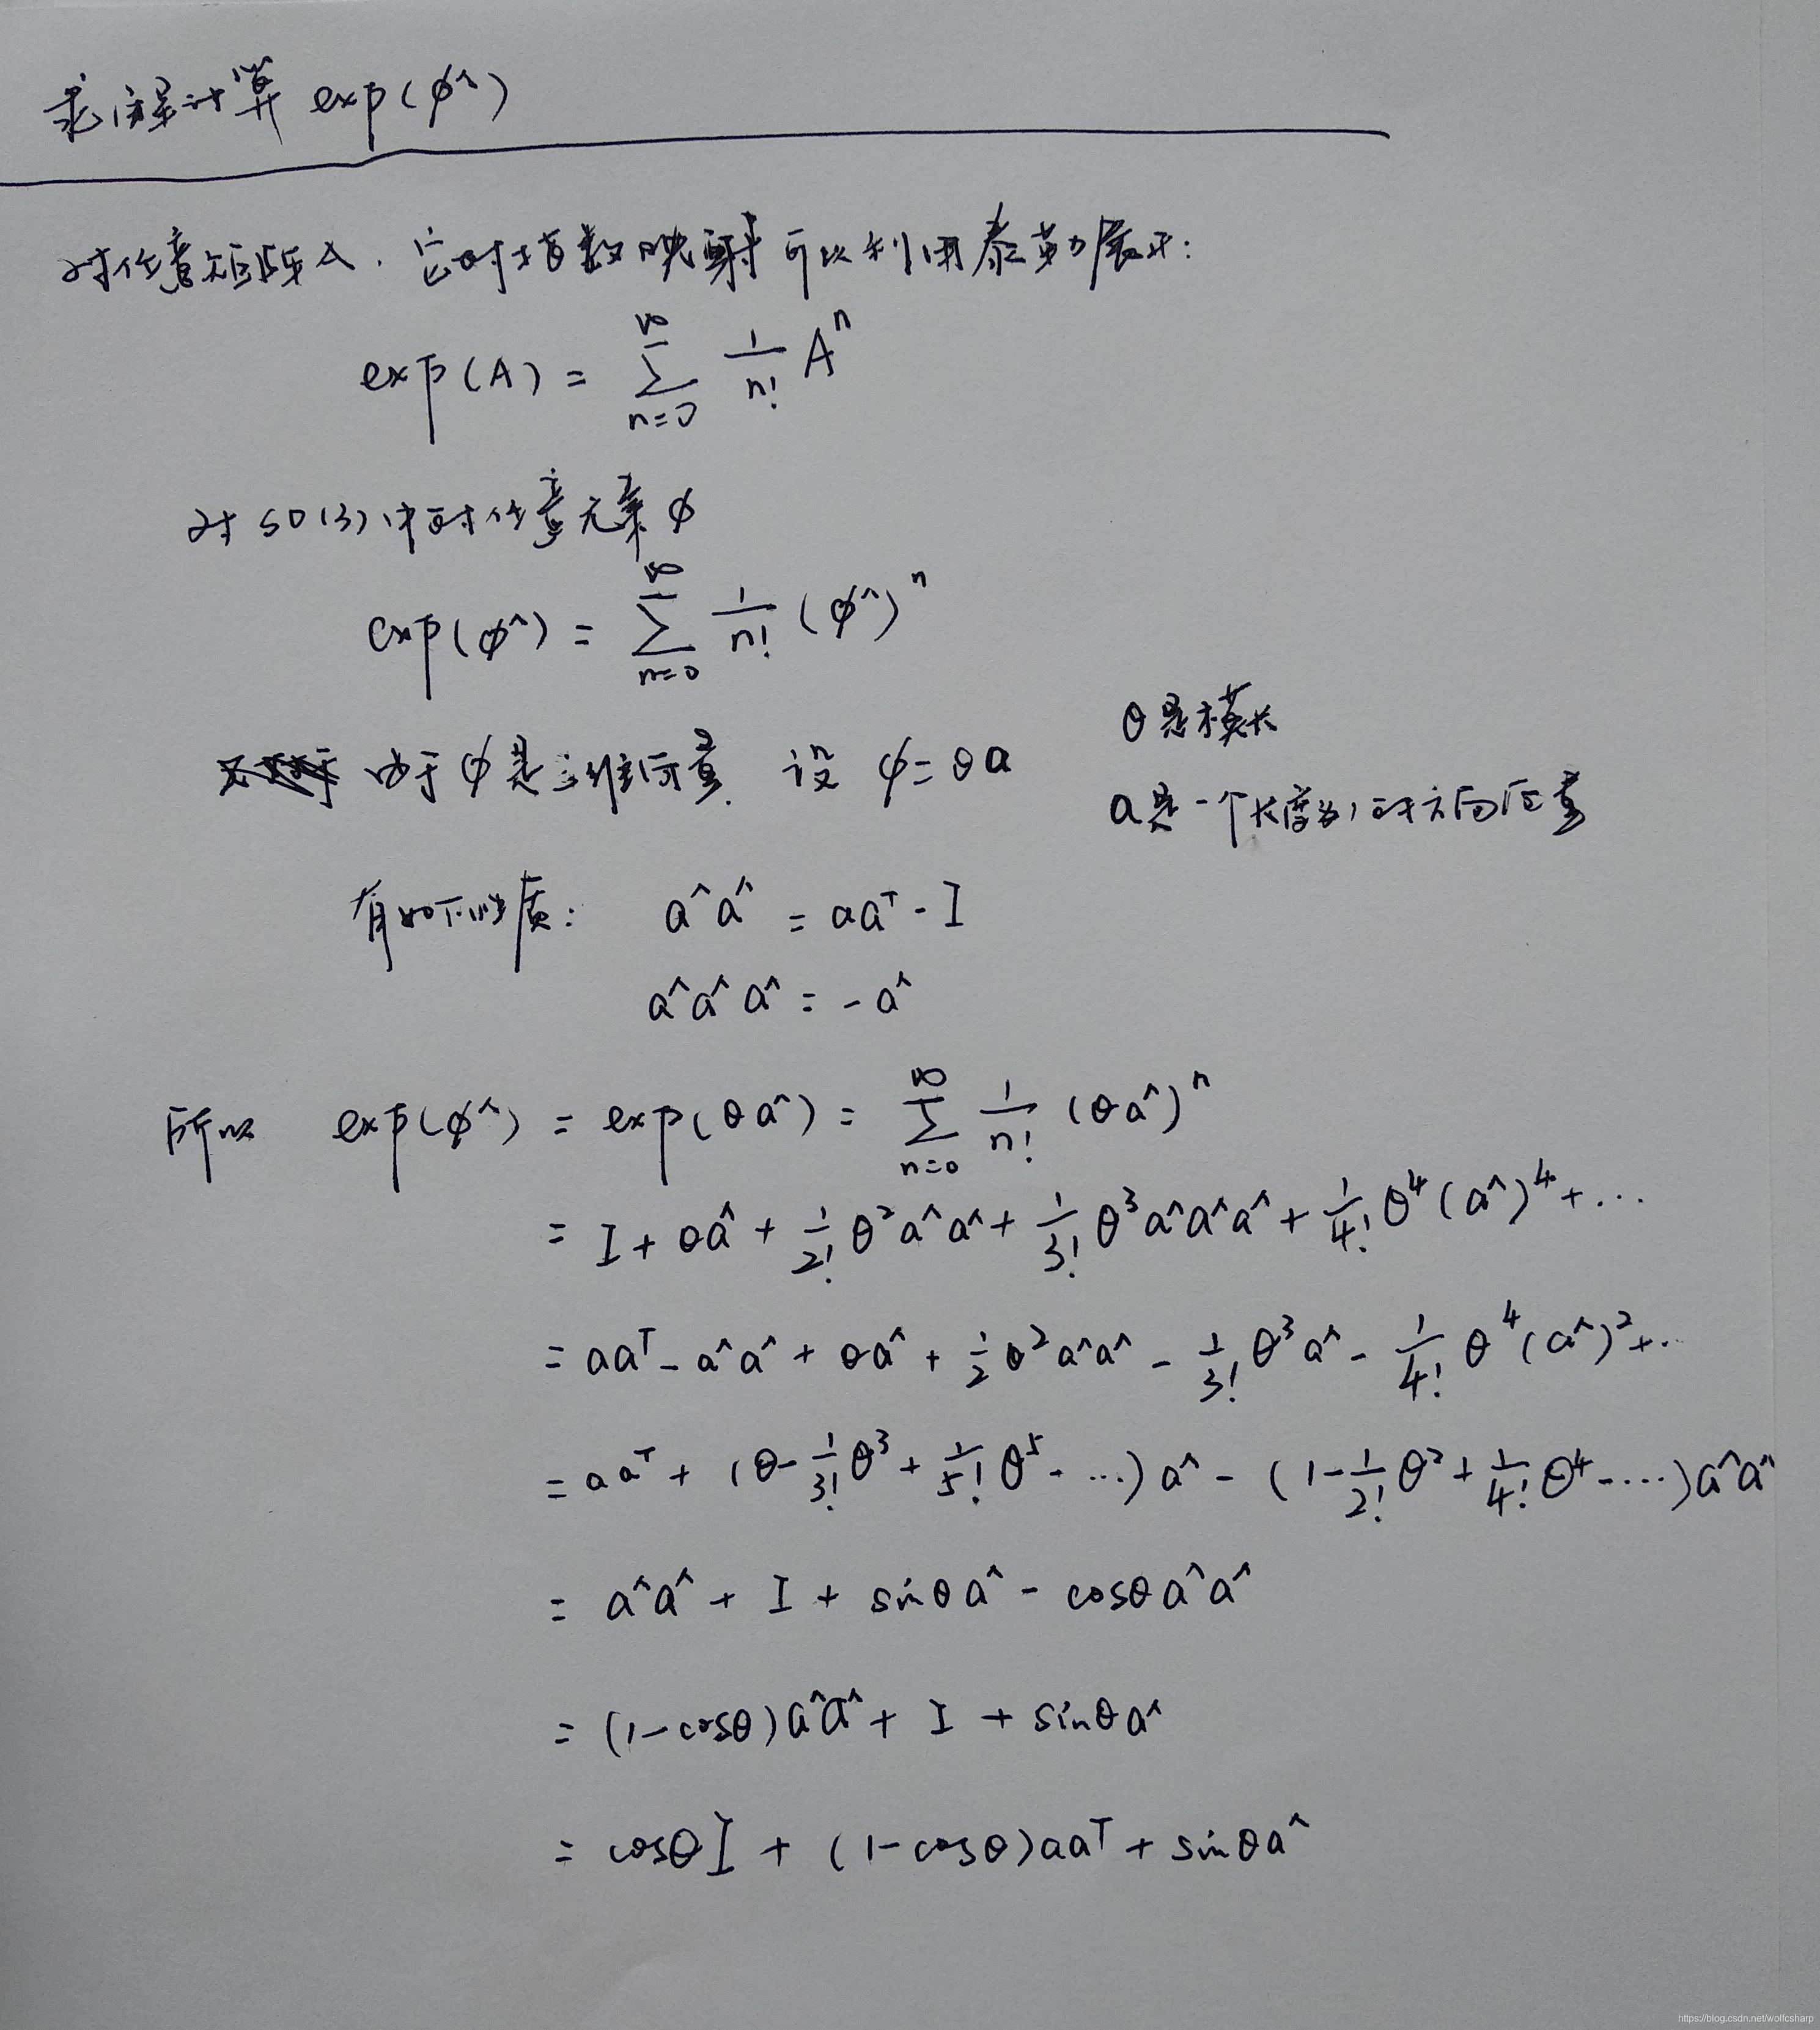 求解计算 exp(φ^)
对任意矩阵A，它的指数映射可以利用泰勒展开：
exp(A) = ∑_{n=0}^{∞} 1/n! A^n
对so(3)中的任意元素φ
exp(φ^) = ∑_{n=0}^{∞} 1/n! (φ^)^n
由于φ是三维向量. 设 φ=θa
θ是模长
a是一个长度为1的方向向量
有如下性质： a^a^ = aaᵀ - I
a^a^a^ = -a^
所以 exp(φ^) = exp(θa^) = ∑_{n=0}^{∞} 1/n! (θa^)^n
= I + θa^ + 1/2! θ²a^a^ + 1/3! θ³a^a^a^ + 1/4! θ⁴(a^)⁴ + ...
= aaᵀ - a^a^ + θa^ + 1/2 θ²a^a^ - 1/3! θ³a^ - 1/4! θ⁴(a^)² + ..
= aaᵀ + (θ - 1/3! θ³ + 1/5! θ⁵ - ...) a^ - (1 - 1/2! θ² + 1/4! θ⁴ - ....) a^a^
= a^a^ + I + sinθa^ - cosθa^a^
= (1-cosθ)a^a^ + I + sinθa^
= cosθI + (1-cosθ)aaᵀ + sinθa^
https://blog.csdn.net/wolfcsharp